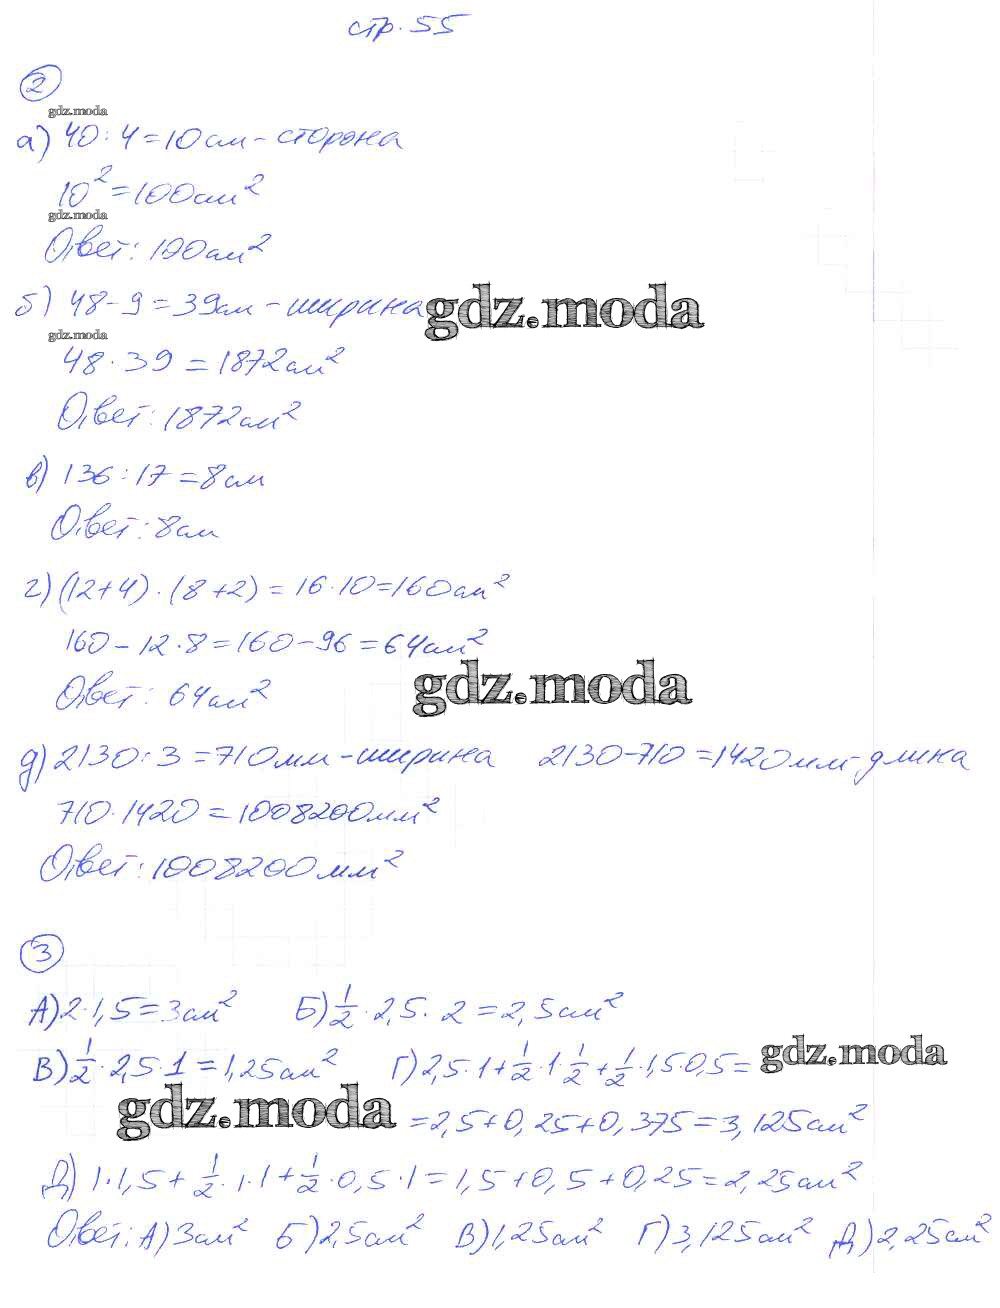 стр. 55
2
gdz.moda
а) 40 : 4 = 10 см - сторона
10² = 100 см²
gdz.moda
Ответ: 100 см²
б) 48 - 9 = 39 см - ширина gdz.moda
gdz.moda
48 · 39 = 1872 см²
Ответ: 1872 см²
в) 136 : 17 = 8 см
Ответ: 8 см
г) (12 + 4) · (8 + 2) = 16 · 10 = 160 см²
160 - 12 · 8 = 160 - 96 = 64 см²
Ответ: 64 см² gdz.moda
д) 2130 : 3 = 710 мм - ширина 2130 - 710 = 1420 мм - длина
710 · 1420 = 1008200 мм²
Ответ: 1008200 мм²
3
А) 2 · 1,5 = 3 см² Б) 1/2 · 2,5 · 2 = 2,5 см²
В) 1/2 · 2,5 · 1 = 1,25 см² Г) 2,5 · 1 + 1/2 · 1 · 1/2 + 1/2 · 1,5 · 0,5 = gdz.moda
gdz.moda = 2,5 + 0,25 + 0,375 = 3,125 см²
Д) 1 · 1,5 + 1/2 · 1 · 1 + 1/2 · 0,5 · 1 = 1,5 + 0,5 + 0,25 = 2,25 см²
Ответ: А) 3 см² Б) 2,5 см² В) 1,25 см² Г) 3,125 см² Д) 2,25 см²